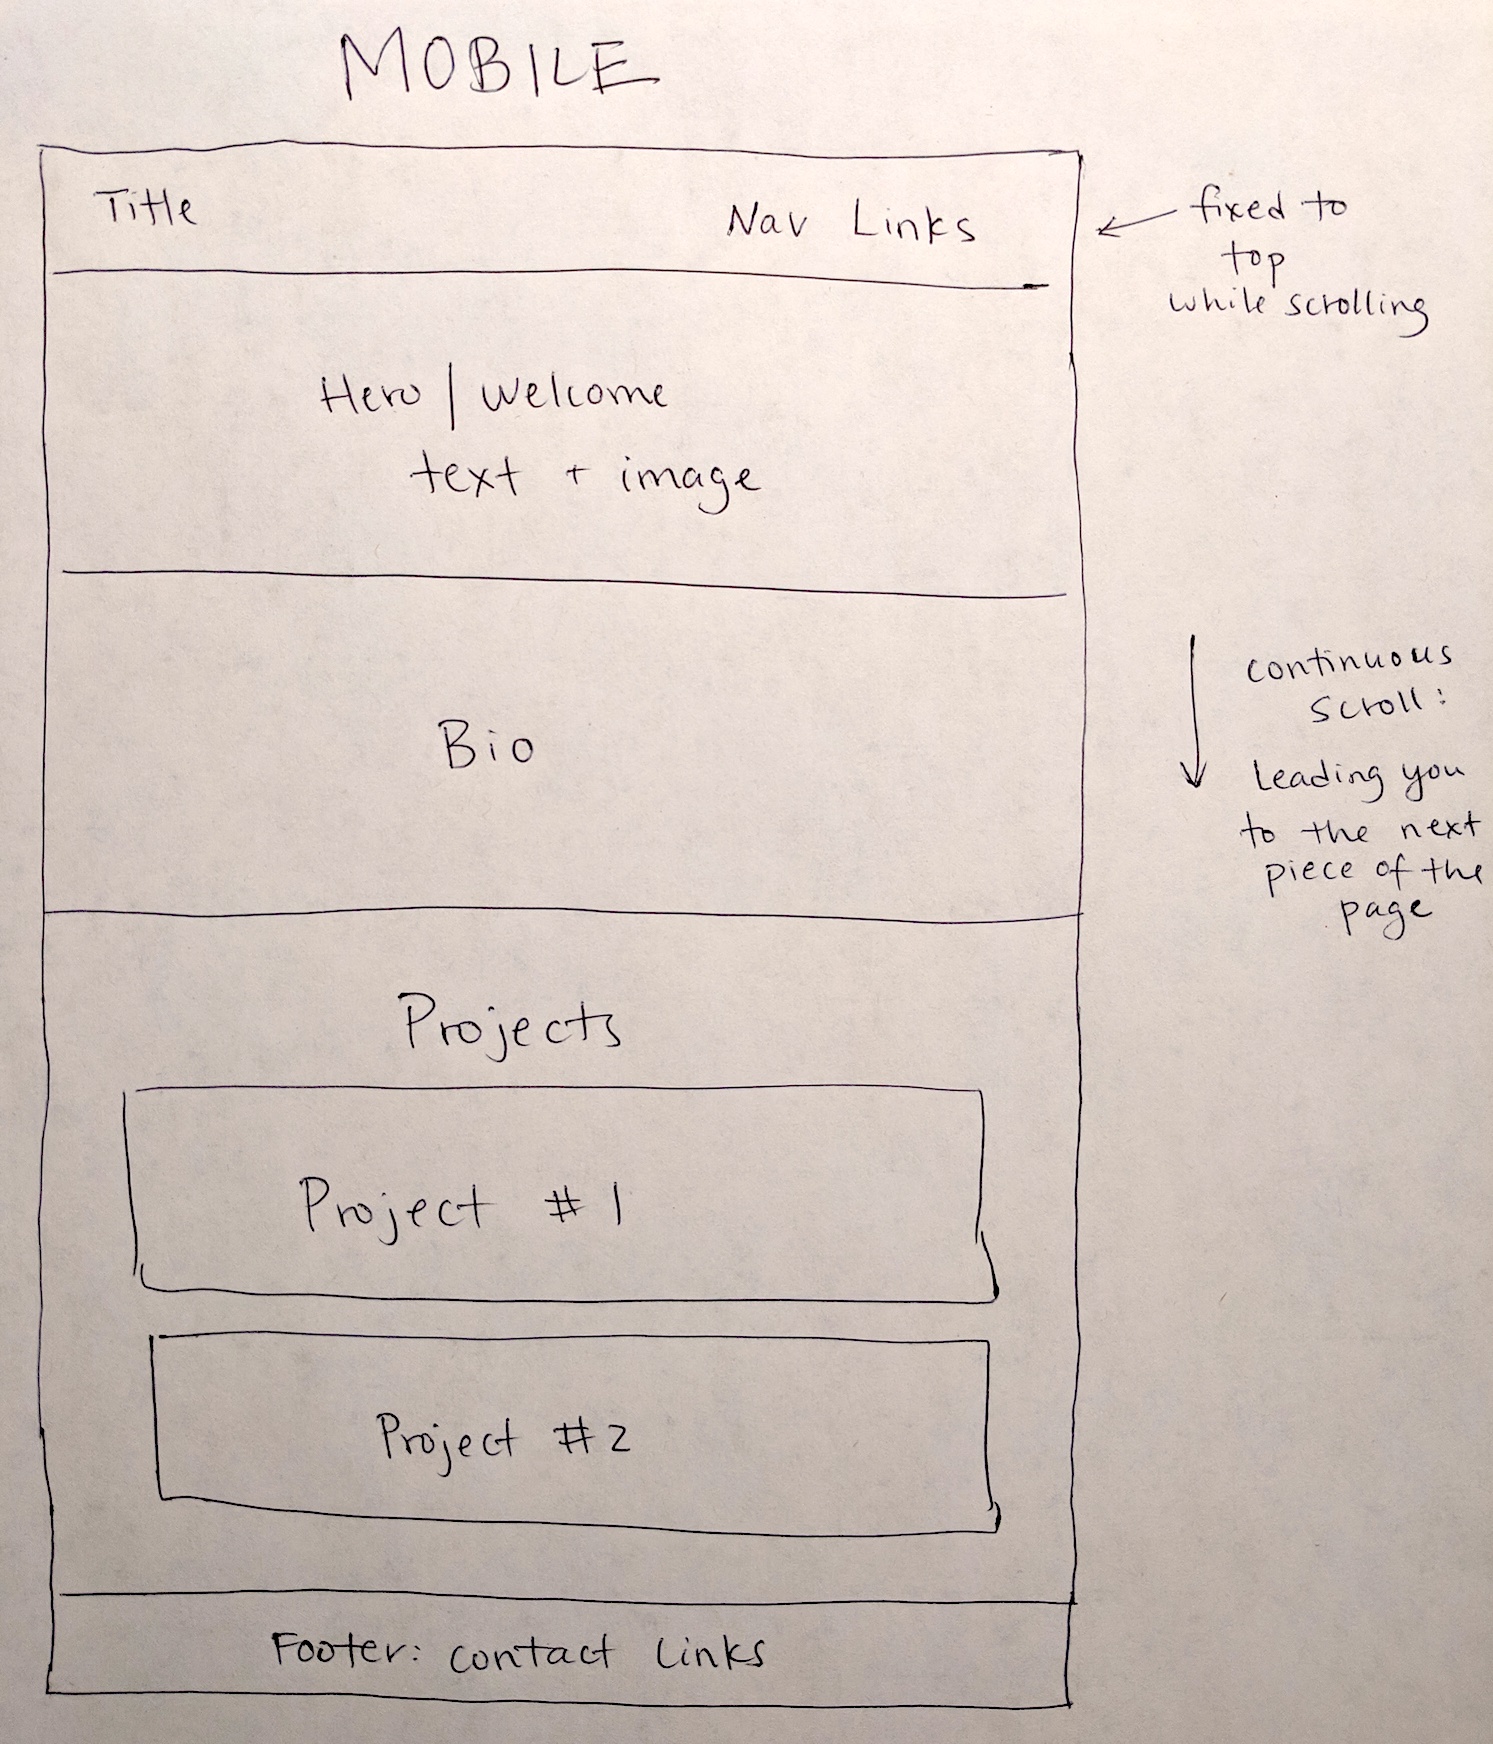 MOBILE
Title
Nav Links
fixed to
top
while scrolling
Hero | Welcome
text + image
Bio
continuous
scroll:
Leading you
to the next
piece of the
page
Projects
Project # 1
Project #2
Footer: contact links